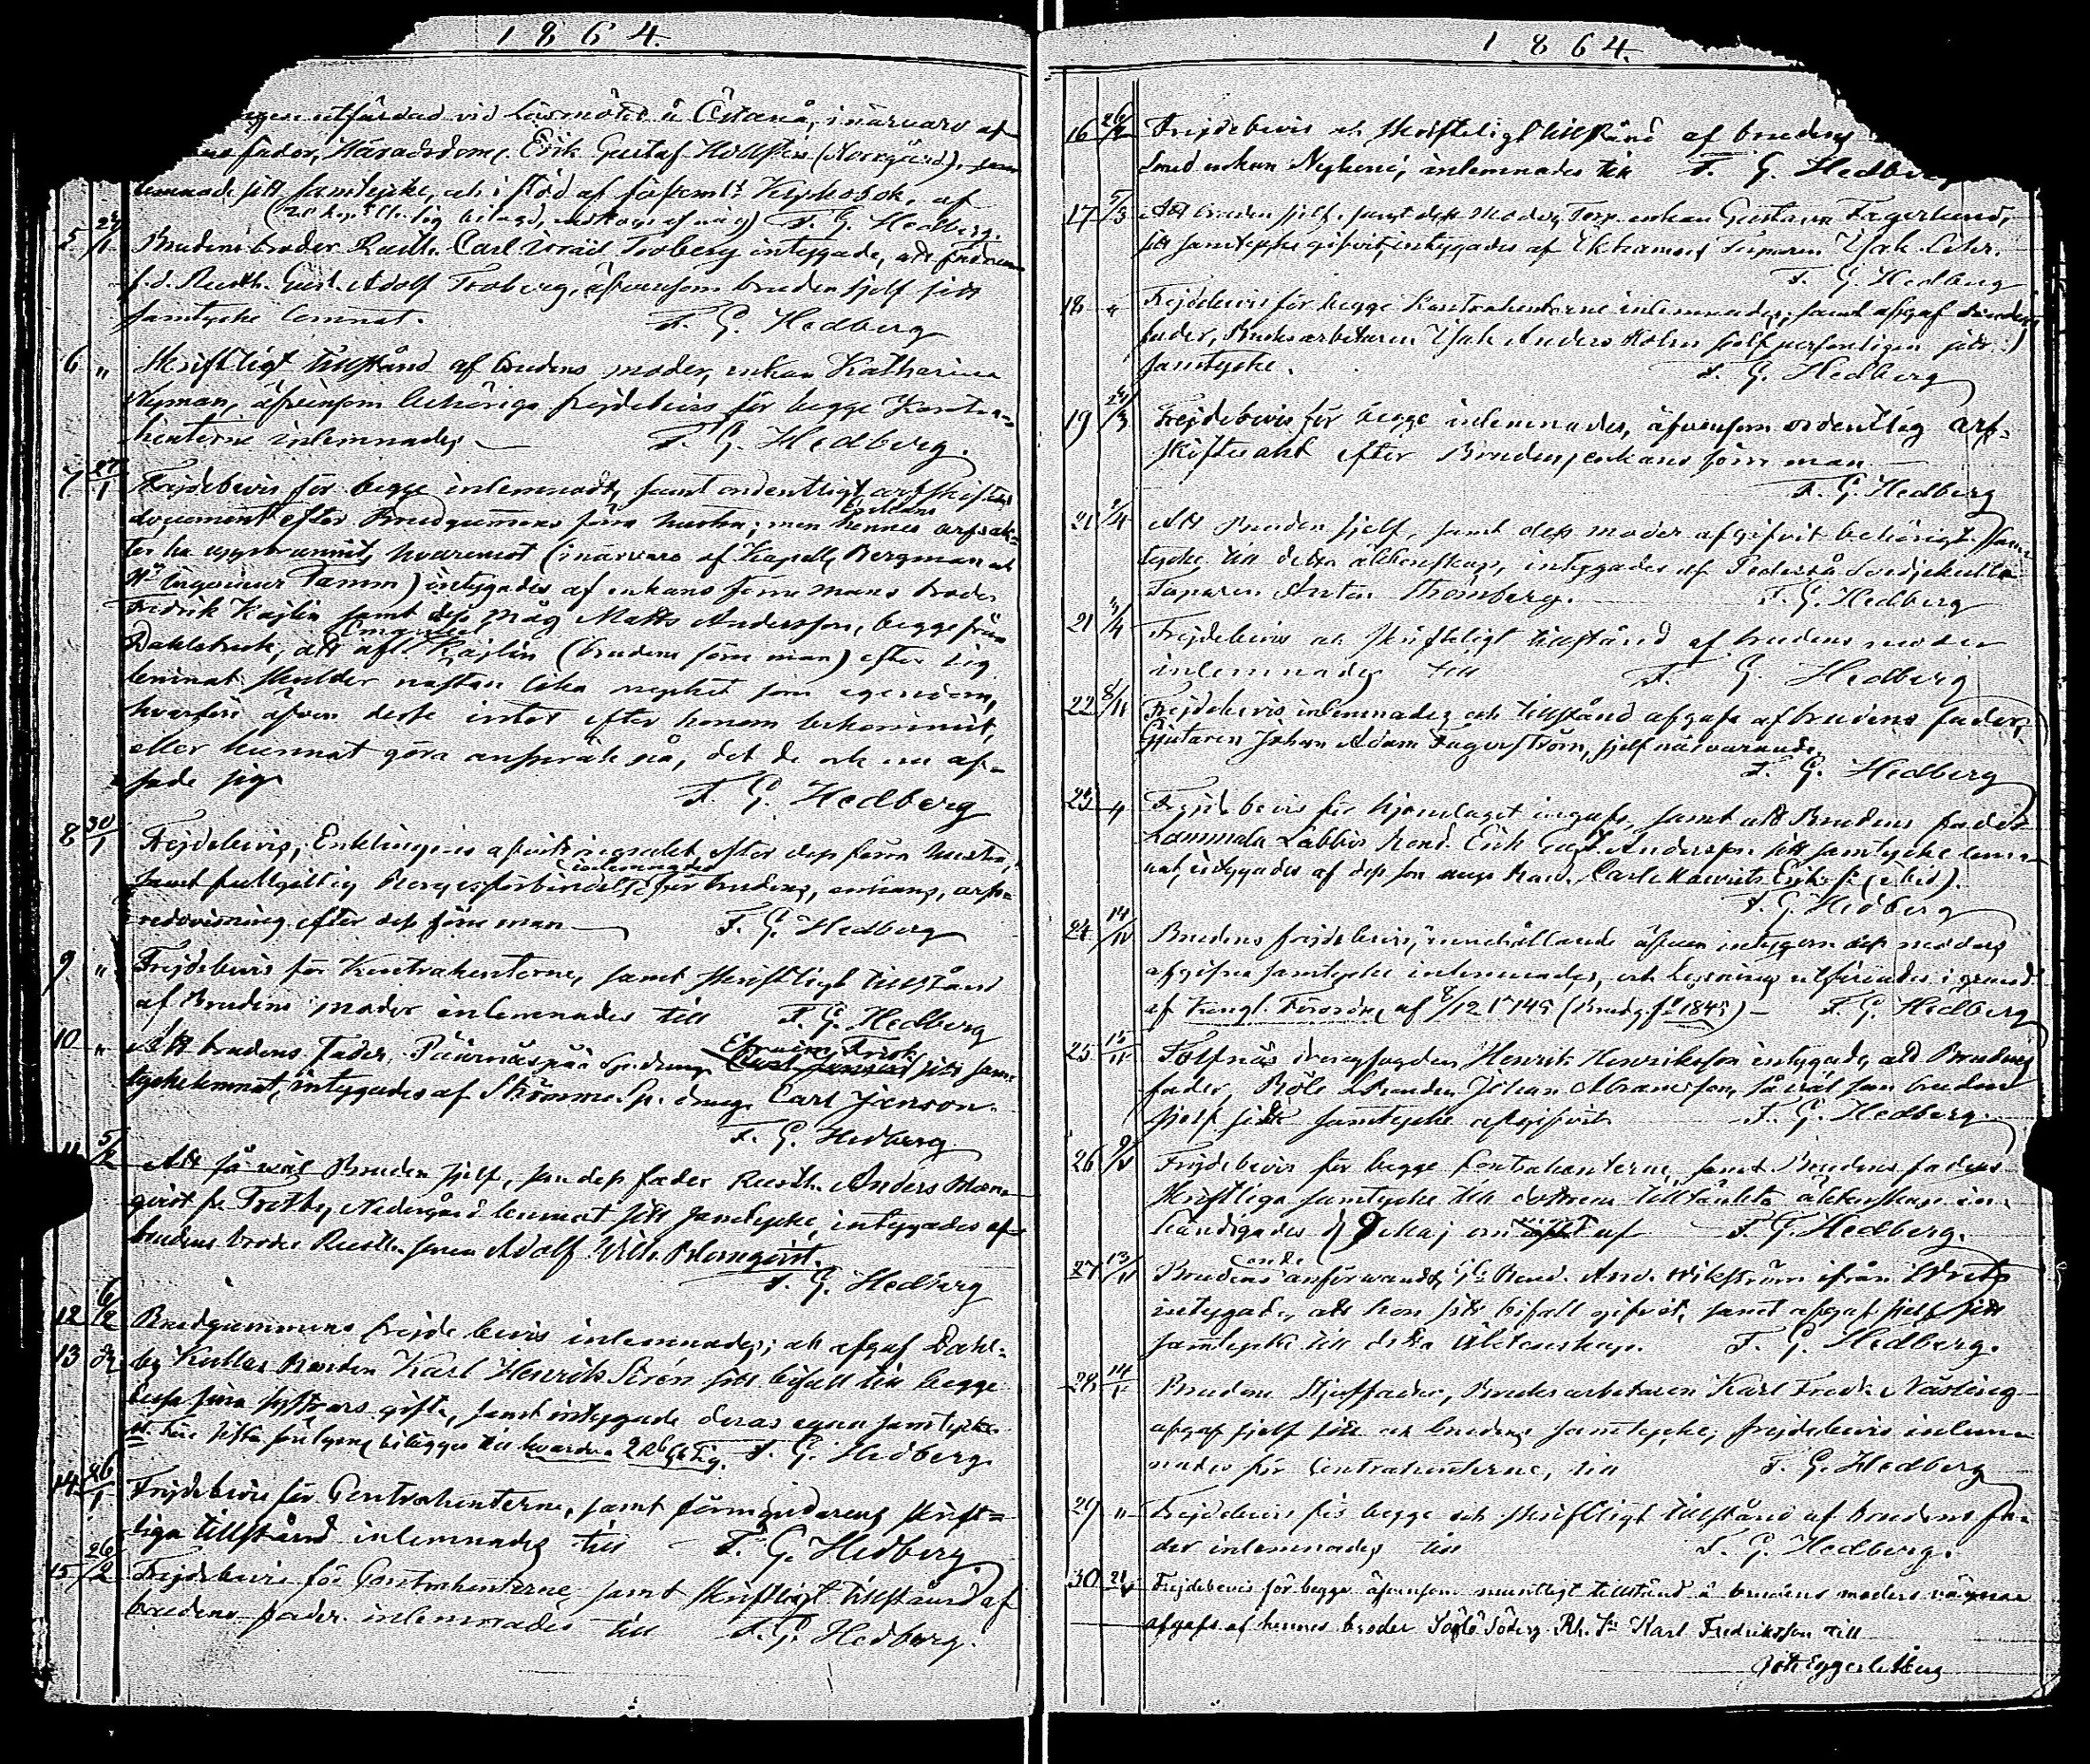 1864.
utfärdad vid Läsmötet å Östanå, i närvaro af
fader, Häradsdom. Erik Gustaf Hollsten (Norrgård), som
lemnade sitt samtycke, och i stöd af
F. G. Hedberg.
5 29/1 Brudens broder Rusth. Carl Israel Troberg intygade, att fadren
f.d. Rusth. Gust. Adolf Troberg, äfvensom bruden sjelf sitt
samtycke lemnat. F. G. Hedberg
6 " Skriftligt tillstånd af brudens moder, enkan Katharina
Nyman, äfvensom behöriga frejdebevis för begge Kontra-
henterne inlemnades F. G. Hedberg.
7 27/1 Frejdebevis för begge inlemnades, samt ordentligt arfskiftes
document efter Brudgummens förra hustru; men hennes enkans
(i närvaro af Kapell. Bergman och
Hr Ingenieur Tamm) intygades af enkans förre mans broder
Fredrik Kajlin samt dess måg Matts Andersson, begge från
Dahlsbruk, att afl. Kajlin (brudens förre man) efter sig
lemnat skulder nästan lika mycket som egendom,
hvarföre äfven desse intet efter honom bekommit,
eller kunnat göra anspråk på, det de och nu af-
sade sig F. G. Hedberg
8 30/1 Frejdebevis, Enklingens afvittringsakt efter dess förra hustru,
samt fullgiltig Borgesförbindelse inlemnades för brudens, enkans, arf-
redovisning efter dess förre man F. G. Hedberg
9. " Frejdebevis för Kontrahenterne, samt skriftligt tillstånd
af Brudens moder inlemnades till F. G. Hedberg
10 " Att brudens fader, Ephraim Frisk sitt sam-
tycke lemnat, intygades af Strömma Sp. dreng Carl Janson.
F. G. Hedberg
11 5/2 Att så wäl Bruden sjelf, som dess fader Rusth. Anders Blom-
qvist fr. Nedergård lemnat sitt samtycke, intygades af
brudens broder Rusth. sonen Adolf Wilh. Blomqvist.
F. G. Hedberg
12 6/2 Brudgummens frejdebevis inlemnades; och afgaf Dahl-
13 by Kullas Bonden Karl Henrik Sirén sitt bifall till begge
dessa sina systrars gifte, samt intygade deras egna samtycke
F. G. Hedberg.
14 26/1 Frejdebevis för Contrahenterne, samt förmyndarens skrift-
liga tillstånd inlemnades till F. G. Hedberg.
15 26/2 Frejdebevis för Contrahenterne, samt skriftligt tillstånd af
brudens fader inlemnades till F. G. Hedberg.
1864.
16 26/2 Frejdebevis och skriftligt tillstånd af brudens
Smed enkan inlemnades till F. G. Hedberg
17 5/3 Att bruden sjelf, samt dess moder, Torp. enkan Gustava Fagerlund,
sitt samtycke gifvit, intygades af Torparen Isak
F. G. Hedberg
18 " Frejdebevis för begge Kontrahenterne inlemnades, samt afgaf brudens
fader, Bruksarbetaren Isak Anders Holm sjelf personligen sitt
samtycke. F. G. Hedberg
19 24/3 Frejdebevis för begge inlemnades, äfvensom ordentlig arf-
skiftesakt efter Brudens, enkans förre man
F. G. Hedberg
20 2/4 Att Bruden sjelf, samt dess moder afgifvit behörigt sam-
tycke till detta äktenskap, intygades af
Torparen Anton Strömberg. F. G. Hedberg
21 3/4 Frejdebevis och skriftligt tillstånd af brudens moder
inlemnades till F. G. Hedberg
22 8/IV Frejdebevis inlemnades och tillstånd afgafs af brudens fader,
Gjutaren Johan Adam Fagerström, sjelf närvarande.
F. G. Hedberg
23 " Frejdebevis för hjonelaget ingafs, samt att Brudens fader
Lammala Labbis Bond. Erik Gust. Andersson sitt samtycke lem-
nat, intygades af dess son unge Bond. Carl Mauritz Eriks s. (ibid).
F. G. Hedberg
24 14/IV Brudens frejdebevis, innehållande äfven intygan dess moders
afgifna samtycke inlemnades, och lysning utfärdades i grund
af Kungl. Förordn. af 8/12 1749 F. G. Hedberg
25 15/IV Tolfnäs drengfogden Henrik Henriksson intygade, att Brudens
fader, Böle Bonden Johan Abramsson, så wäl som bruden
sjelf sitt samtycke afgifvit F. G. Hedberg.
26 9/V Frejdebevis för begge Contrahenterne, samt Brudens faders
skriftliga samtycke till dottrens tilltänkta äktenskap in-
händigades d. 9 Maj om af F. G. Hedberg.
27 13/V Brudens anförwandt, Bond. And. Wikström ifrån
intygade, att hon sitt bifall gifvit, samt afgaf sjelf sitt
samtycke till detta äktenskap. F. G. Hedberg.
28 14/V Brudens Styffader, Bruksarbetaren Karl Fredr. Näsling
afgaf sjelf sitt och brudens samtycke; frejdebevis inlem-
nades för Contrahenterne, till F. G. Hedberg
29 " Frejdebevis för begge och skriftligt tillstånd af brudens fa-
der inlemnades till F. G. Hedberg.
30 21/V Frejdebevis för begge äfvensom muntligt tillstånd å brudens moders vägnar
afgafs af hennes broder Söglö Söderg. Rh. Sn Karl Fredriksson till